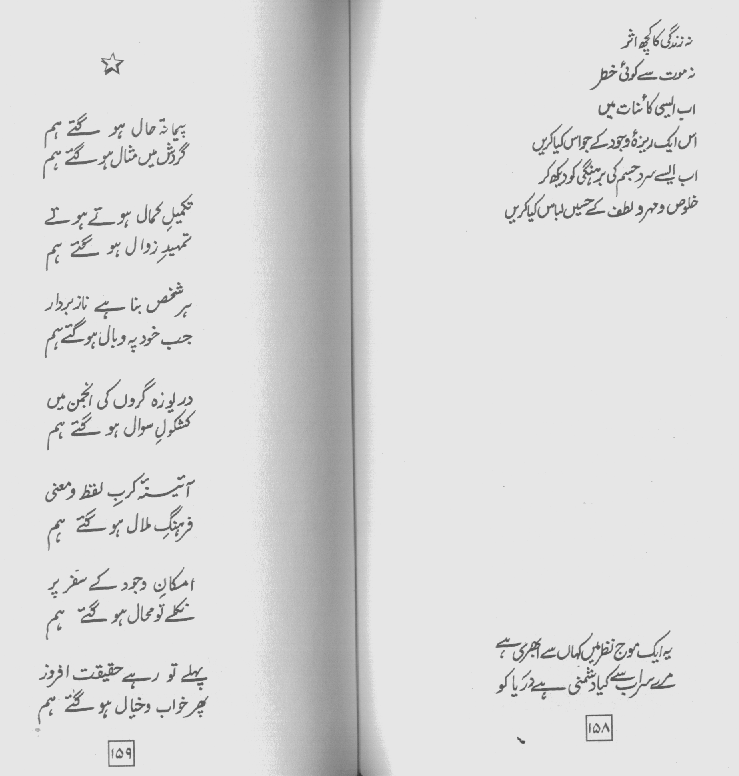 نہ زندگی کا کچھ اثر
نہ موت سے کوئی خطر
اب ایسی کائنات میں
اس ایک ریزۂ وجود کے حواس کیا کریں
اب ایسے سرد جسم کی برہنگی کو دیکھ کر
خلوص و مہر و لطف کے حسیں لباس کیا کریں
یہ ایک موج نظر میں کہاں سے ابھری ہے
مرے سراب سے کیا دشمنی ہے دریا کو
۱۵۸
پیمانۂ حال ہو گئے ہم
گردش میں مثال ہو گئے ہم
تکمیلِ کمال ہوتے ہوتے
تمہیدِ زوال ہو گئے ہم
ہر شخص بنا ہے ناز بردار
جب خود پہ وبال ہو گئے ہم
دریوزہ گروں کی انجمن میں
کشکولِ سوال ہو گئے ہم
آئینۂ کربِ لفظ و معنی
فرہنگِ ملال ہو گئے ہم
امکانِ وجود کے سفر پر
نکلے تو محال ہو گئے ہم
پہلے تو رہے حقیقت افروز
پھر خواب و خیال ہو گئے ہم
۱۵۹